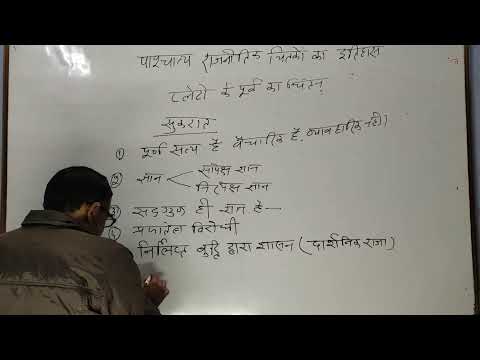 पाश्चात्य राजनीतिक चिंतकों का इतिहास
प्लेटो के पूर्व का चिंतन
सुकरात
① पूर्ण सत्य है वैचारिक है, व्यावहारिक नहीं।
② ज्ञान
सापेक्ष ज्ञान
निरपेक्ष ज्ञान
③ सद्गुण ही ज्ञान है—
④ प्रजातंत्र विरोधी
निर्लिप्त बुद्धि द्वारा शासन (दार्शनिक राजा)